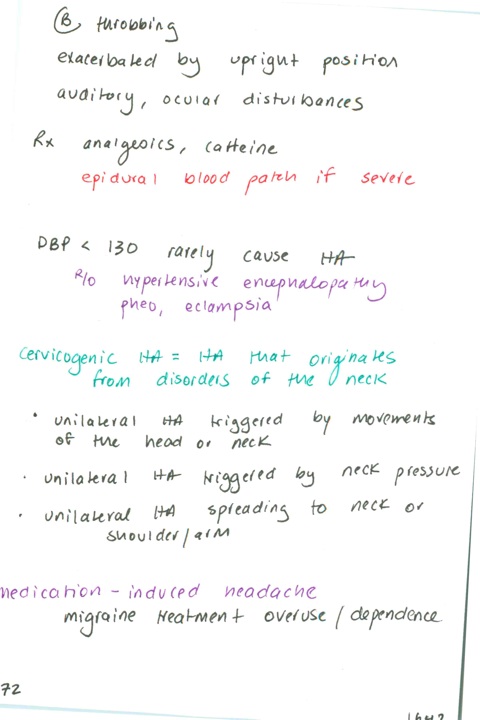 Ⓑ throbbing
exacerbated by upright position
auditory, ocular disturbances
Rx analgesics, caffeine
epidural blood patch if severe
DBP < 130 rarely cause HA
R/O hypertensive encephalopathy
pheo, eclampsia
Cervicogenic HA = HA that originates
from disorders of the neck
• unilateral HA triggered by movements
of the head or neck
• unilateral HA triggered by neck pressure
• unilateral HA spreading to neck or
shoulder/arm
medication-induced headache
migraine treatment overuse/dependence
72